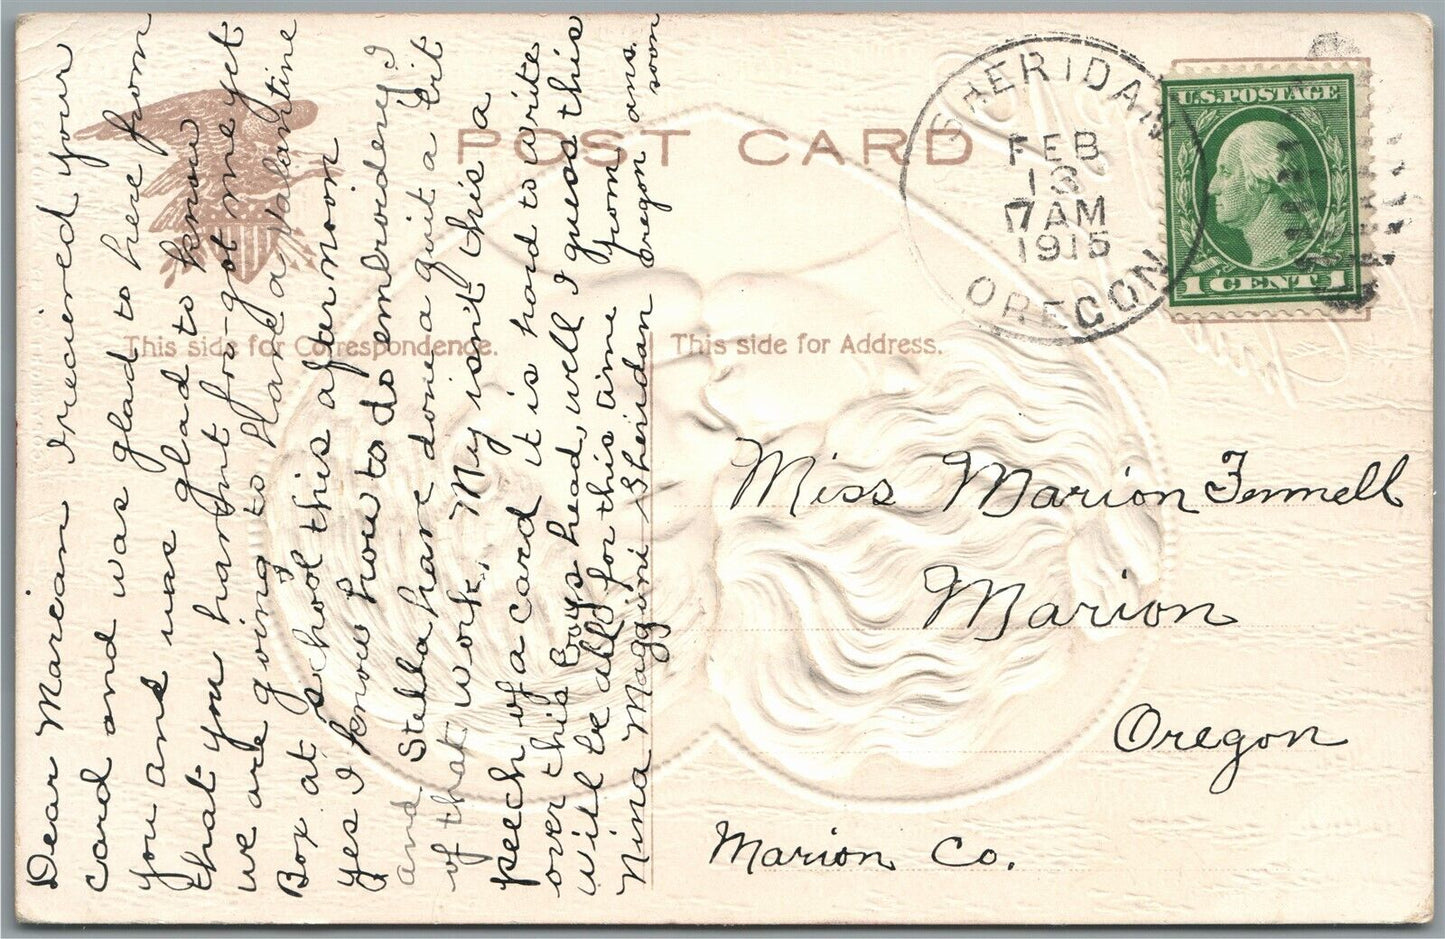 POST CARD
This side for Correspondence.
This side for Address.
SHERIDAN
FEB
13
7 AM
1915
OREGON
U.S. POSTAGE
1 CENT 1
Miss Marion Fennell
Marion
Oregon
Marion Co.
Dear Marean I recieved your
card and was glad to here from
you and was glad to know
that you hav,nt foo-got me yet
we are going to Have a valantine
Box at school this afternoon
yes I know how to do embroidery I
and Stella have done quit a bit
of that work. My isn't this a
peech of a card it is hard to write
over this boys head, well I guess this
will be all for this time from
Nina Maggini Sheridan oregon ans
soon